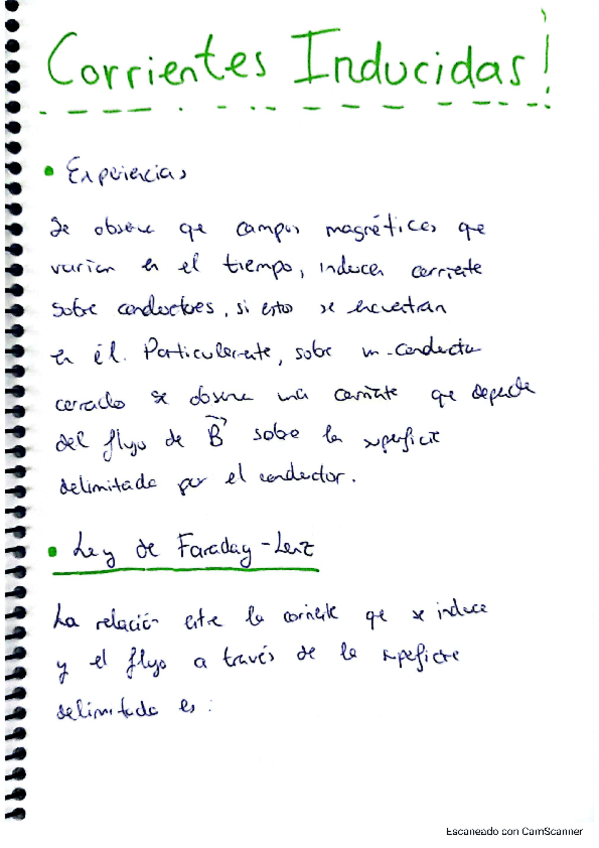 Corrientes Inducidas!
• Experiencias
Se observa que campos magnéticos que
varían en el tiempo, inducen corriente
sobre conductores, si estos se encuentran
en él. Particularmente, sobre un conductor
cerrado se observa una corriente que depende
del flujo de B⃗ sobre la superficie
delimitada por el conductor.
• Ley de Faraday-Lenz
La relación entre la corriente que se induce
y el flujo a través de la superficie
delimitada es:
Escaneado con CamScanner